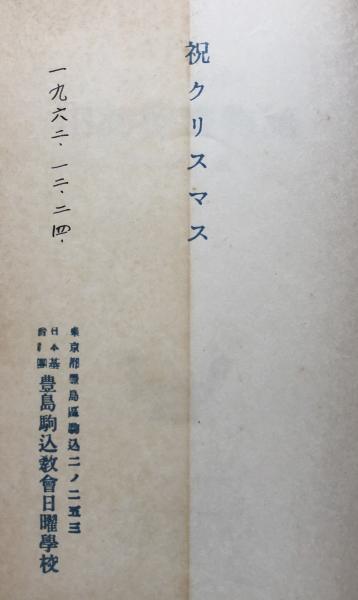 祝クリスマス
一九六二・一二・二四・
東京都豊島區駒込二ノ二五三
日本基
督教團
豊島駒込教會日曜學校